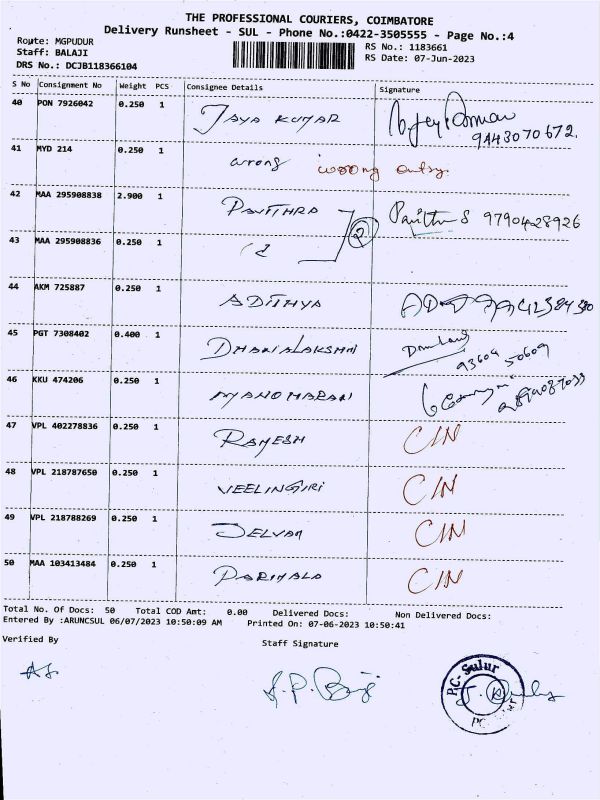 THE PROFESSIONAL COURIERS, COIMBATORE
Delivery Runsheet - SUL - Phone No.:0422-3505555 - Page No.:4
Route: MGPUDUR
Staff: BALAJI
DRS No.: DCJB118366104
RS No.: 1183661
RS Date: 07-Jun-2023
S No Consignment No Weight PCS Consignee Details Signature
40 PON 7926042 0.250 1 JAYA KUMAR 9443070672.
41 MYD 214 0.250 1 wrong wrong entry.
42 MAA 295908838 2.900 1 PAVITHRA Pavithra S 9790428926
43 MAA 295908836 0.250 1 2
44 AKM 725887 0.250 1 ADITHYA
45 PGT 7308402 0.400 1 DHANALAKSHMI 93604 50609
46 KKU 474206 0.250 1 MANOHARAN
47 VPL 402278836 0.250 1 RAMESH C/N
48 VPL 218787650 0.250 1 VEELINGIRI C/N
49 VPL 218788269 0.250 1 SELVAM C/N
50 MAA 103413484 0.250 1 PARIMALA C/N
Total No. Of Docs: 50 Total COD Amt: 0.00 Delivered Docs: Non Delivered Docs:
Entered By :ARUNCSUL 06/07/2023 10:50:09 AM Printed On: 07-06-2023 10:50:41
Verified By Staff Signature
P.C. Sulur